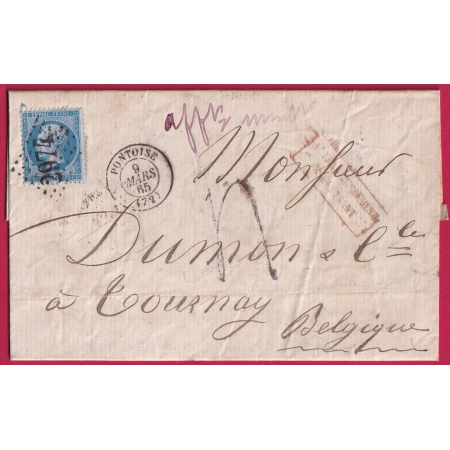 EMPIRE FRANC
affr. insuff
2974
PONTOISE
9
MARS
65
(72)
Monsieur
Dumon & Cie
à Tournay
Belgique